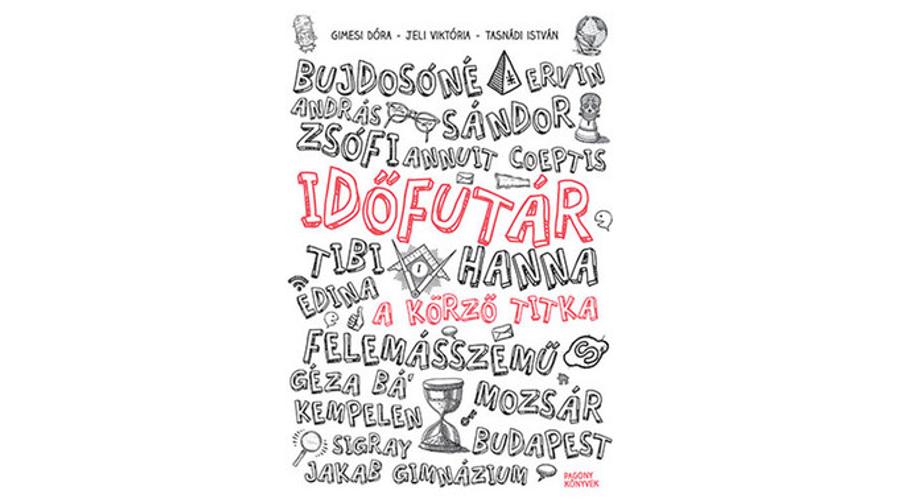 GIMESI DÓRA - JELI VIKTÓRIA - TASNÁDI ISTVÁN
BUJDOSÓNÉ ERVIN
ANDRÁS SÁNDOR
ZSÓFI ANNUIT COEPTIS
IDŐFUTÁR
TIBI HANNA
EDINA
A KÖRZŐ TITKA
FELEMÁSSZEMŰ
GÉZA BÁ'
KEMPELEN MOZSÁR
SIGRAY BUDAPEST
JAKAB GIMNÁZIUM
PAGONY
KÖNYVEK